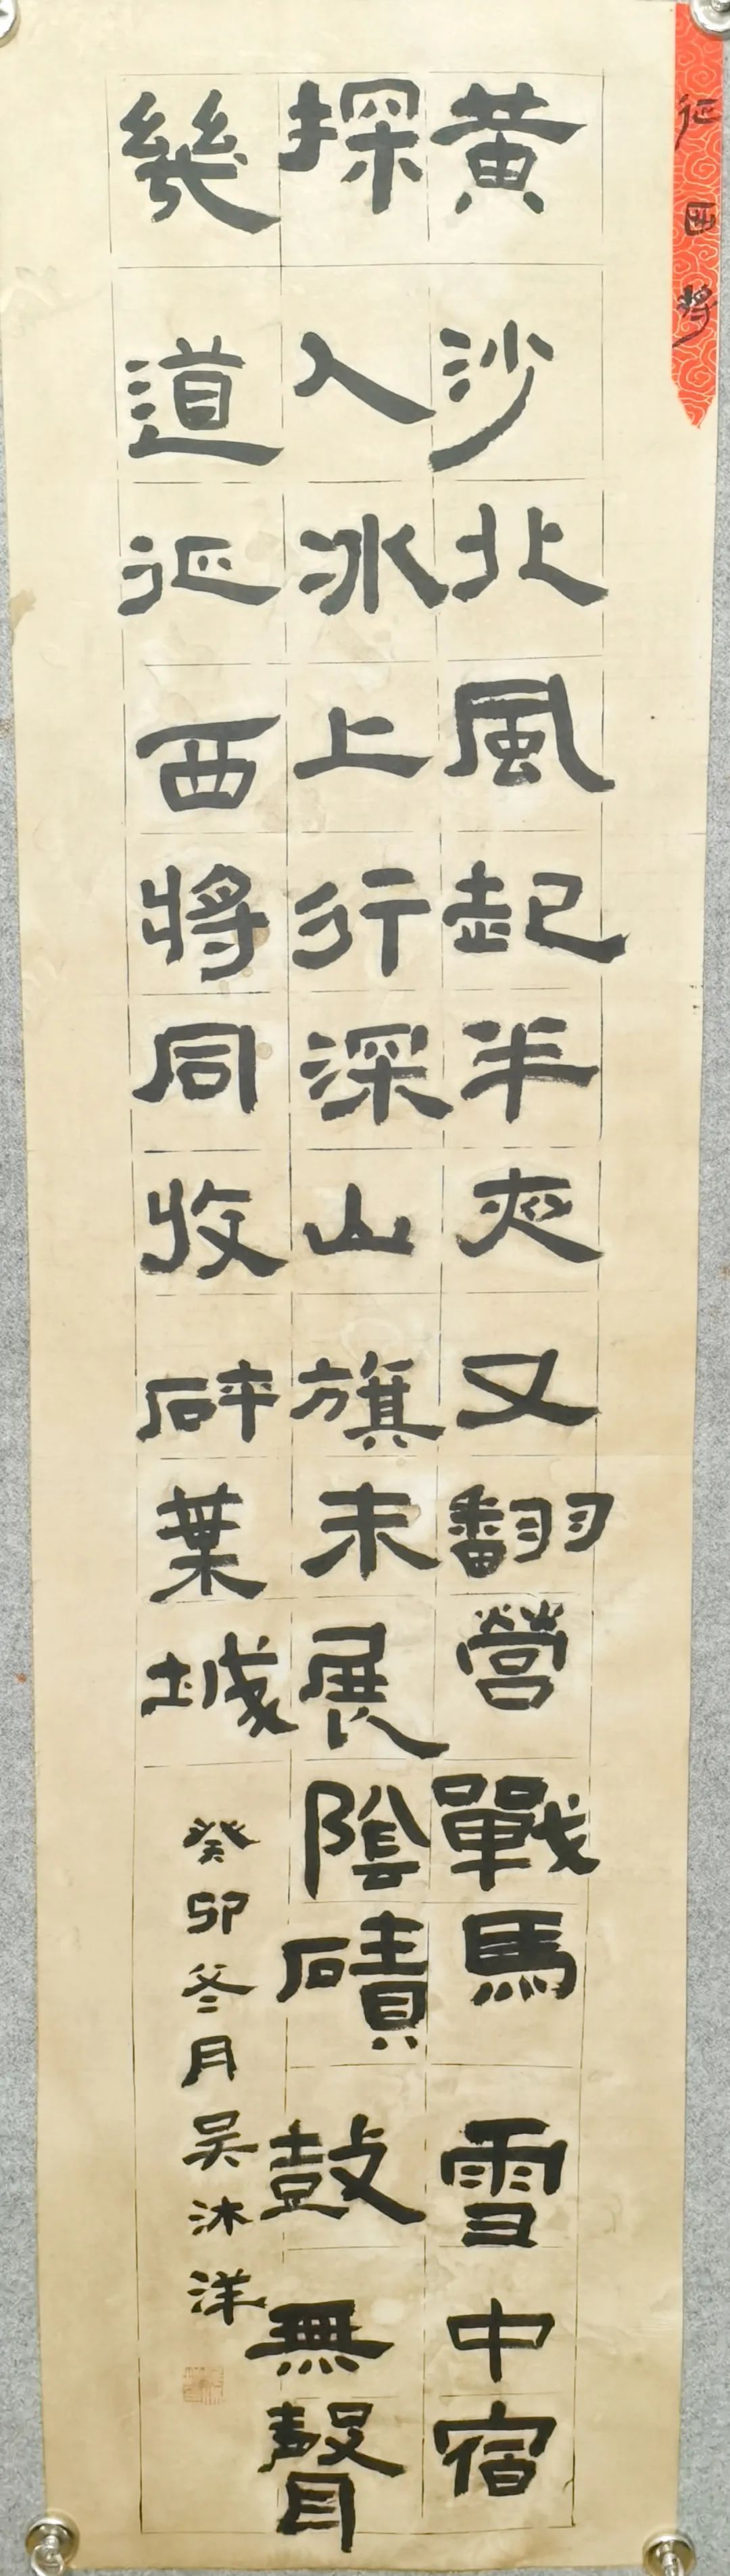 征西将
黄沙北風起半夜又翻營戰馬雪中宿
探入冰上行深山旗未展陰磧鼓無聲
幾道征西将同收碎葉城
癸卯冬月吴沐洋